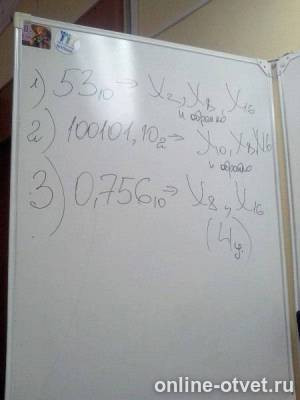 1) 53₁₀ → X₂, X₈, X₁₆
и обратно
2) 100101,10₂ → X₁₀, X₈, X₁₆
и обратно
3) 0,756₁₀ → X₈, X₁₆
(4ц.)
online-otvet.ru